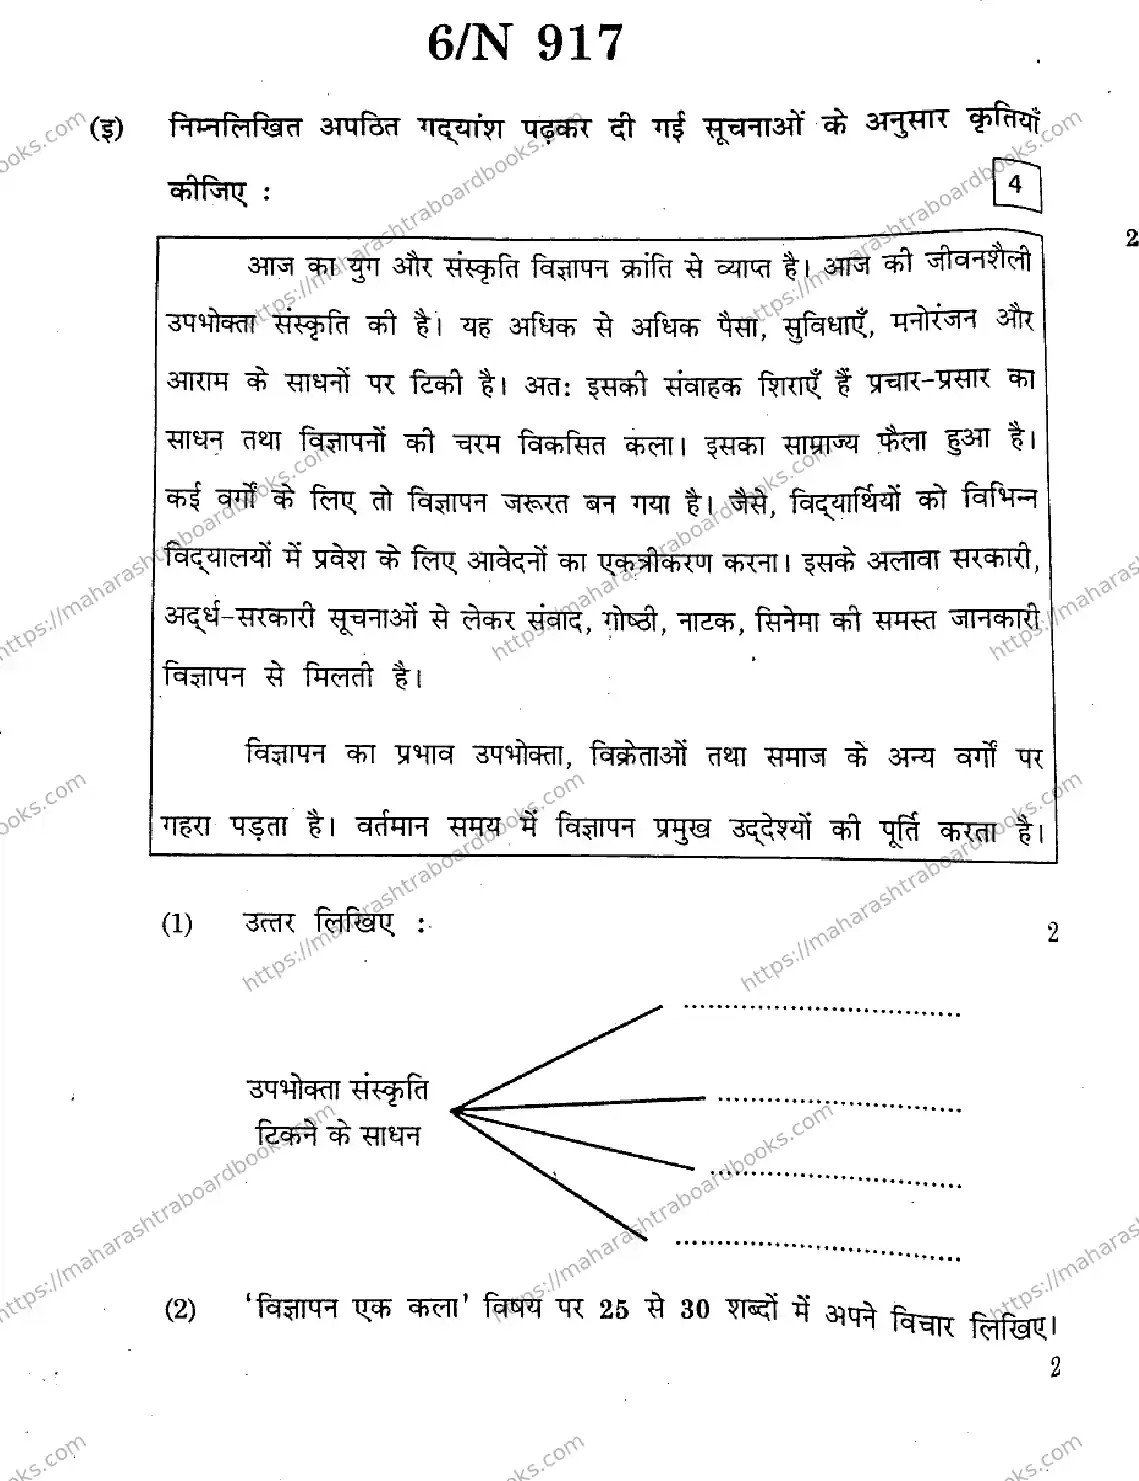 6/N 917
(इ) निम्नलिखित अपठित गद्यांश पढ़कर दी गई सूचनाओं के अनुसार कृतियाँ
कीजिए :
4
2
आज का युग और संस्कृति विज्ञापन क्रांति से व्याप्त है। आज की जीवनशैली
उपभोक्ता संस्कृति की है। यह अधिक से अधिक पैसा, सुविधाएँ, मनोरंजन और
आराम के साधनों पर टिकी है। अतः इसकी संवाहक शिराएँ हैं प्रचार-प्रसार का
साधन तथा विज्ञापनों की चरम विकसित कला। इसका साम्राज्य फैला हुआ है।
कई वर्गों के लिए तो विज्ञापन जरूरत बन गया है। जैसे, विद्यार्थियों को विभिन्न
विद्यालयों में प्रवेश के लिए आवेदनों का एकत्रीकरण करना। इसके अलावा सरकारी,
अर्द्ध-सरकारी सूचनाओं से लेकर संवाद, गोष्ठी, नाटक, सिनेमा की समस्त जानकारी
विज्ञापन से मिलती है।
विज्ञापन का प्रभाव उपभोक्ता, विक्रेताओं तथा समाज के अन्य वर्गों पर
गहरा पड़ता है। वर्तमान समय में विज्ञापन प्रमुख उद्देश्यों की पूर्ति करता है।
(1) उत्तर लिखिए :
2
उपभोक्ता संस्कृति
टिकने के साधन
(2) 'विज्ञापन एक कला' विषय पर 25 से 30 शब्दों में अपने विचार लिखिए।
2
https://maharashtraboardbooks.com